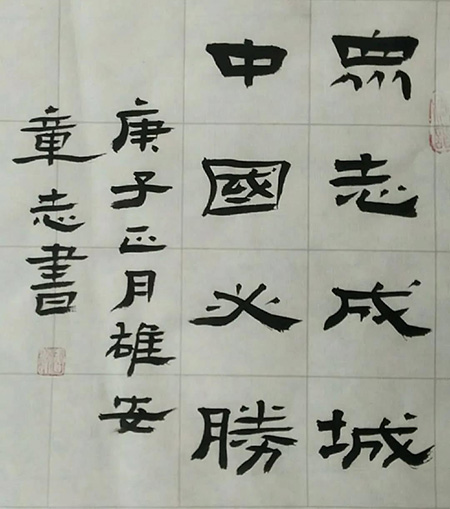 眾志成城
中國必勝
庚子正月雄安
章志書